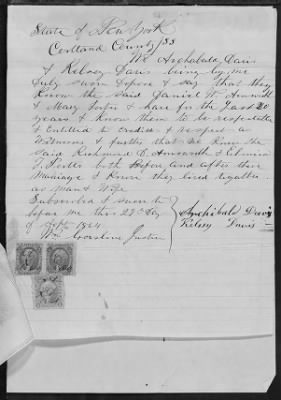 State of New York
Cortland County SS
We Archabald Davis
& Kelsey Davis being by me
duly sworn depose & say that they
know the said Daniel W.
& Mary & have for the Last 20
years & know them to be respectable
& Entitled to credit & respect as
Witnesses & further that we know the
said Richmond C. & Edwin
T. both before and after their
Marriage & know they lived together
as man & Wife
Subscribed & sworn to
before me this 22nd day
of Sept 1864
Wm Justice
Archibald Davis
Kelsey Davis